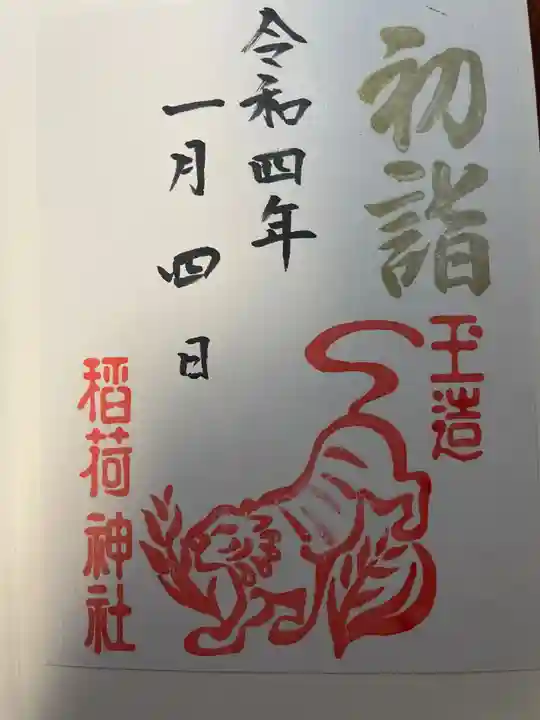 初詣
玉造
令和四年
一月四日
稻荷神社